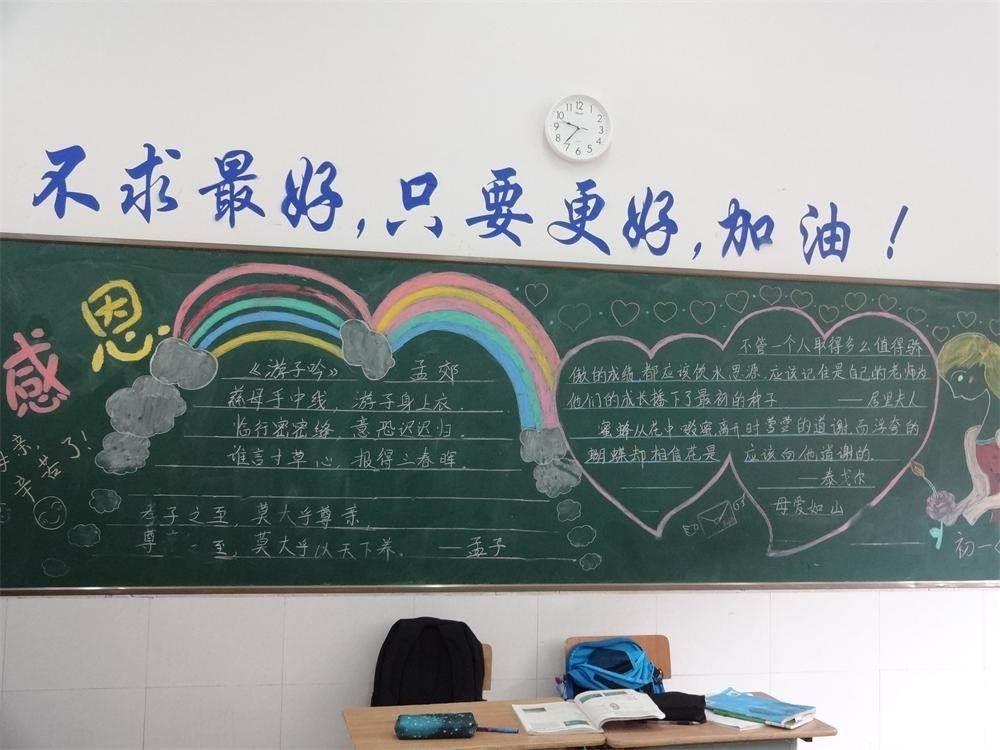 不求最好,只要更好,加油!
感恩
亲,
辛苦了!
《游子吟》 孟郊
慈母手中线,游子身上衣.
临行密密缝,意恐迟迟归.
谁言寸草心,报得三春晖.
孝子之至,莫大乎尊亲,
尊 至,莫大乎以天下养. —孟子
不管一个人取得多么值得骄
傲的成绩,都应该饮水思源,应该记住是自己的老师为
他们的成长播下了最初的种子 ——居里夫人
蜜蜂从花中啜蜜,离开时营营的道谢.而浮夸的
蝴蝶却相信花是 应该向他道谢的.
——泰戈尔
母爱如山
初一
12 1 2 3 4 5 6 7 8 9 10 11